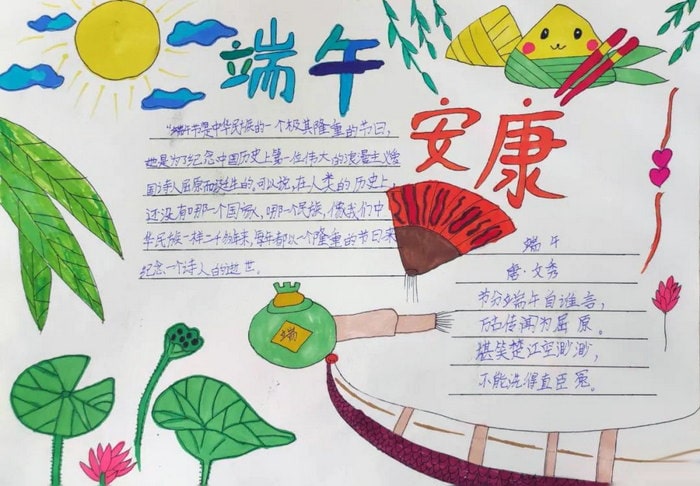 端午
安康
"端午节是中华民族的一个极其隆重的节日,
她是为了纪念中国历史上第一位伟大的浪漫主义爱
国诗人屈原而诞生的。可以说,在人类的历史上,
还没有哪一个国家,哪一个民族,像我们中
华民族一样二千多年来,每年都以一个隆重的节日来
纪念一个诗人的逝世。
端午
唐·文秀
节分端午自谁言,
万古传闻为屈原。
堪笑楚江空渺渺,
不能洗得直臣冤。
端